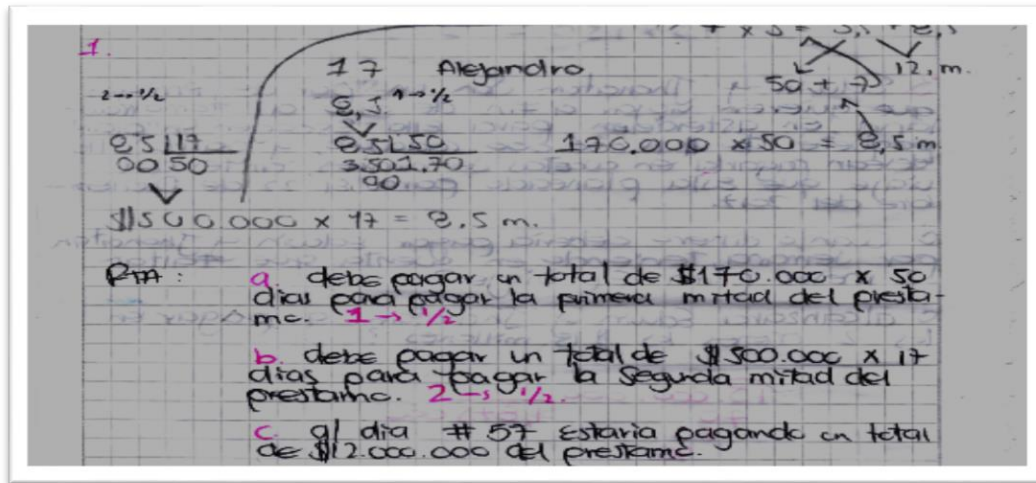 1.
17 Alejandro
50 + 7
12. m.
2 → 1/2
8,5 1 → 1/2
85 | 17
00 50
85 | 50
350 1.70
00
170.000 x 50 = 8,5 m
$ 500.000 x 17 = 8.5 m.
RTA:
a. debe pagar un total de $170.000 x 50
dias para pagar la primera mitad del presta-
mo. 1 → 1/2
b. debe pagar un total de $500.000 x 17
dias para pagar la segunda mitad del
prestamo. 2 → 1/2.
c. al dia # 57 estaria pagando un total
de $12.000.000 del prestamo.